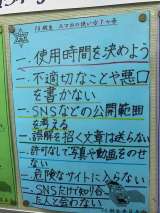 一、使用時間を決めよう
一、不適切なことや悪口
を書かない
一、SNSなどの公開範囲
を考える
一、誤解を招く文章は送らない
一、許可なしで写真や動画をのせ
ない
一、危険なサイトに入らない
一、SNSだけで知り合っ
た人と会わない